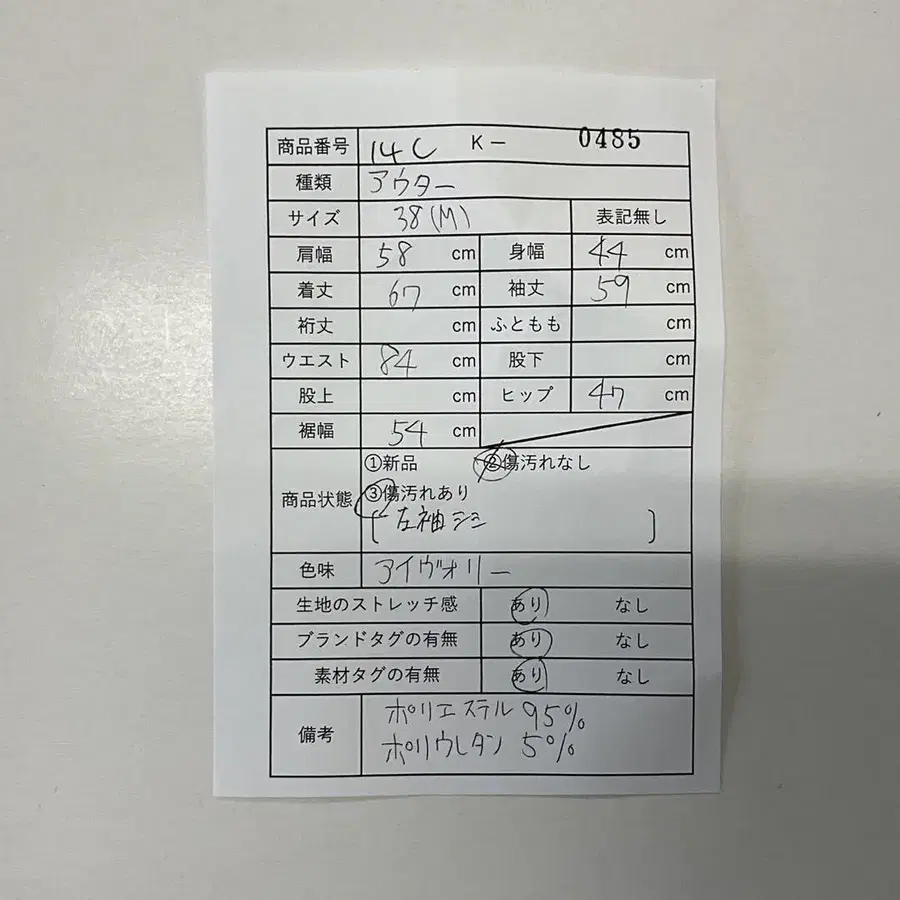 商品番号 14C K- 0485
種類 アウター
サイズ 38(M) 表記無し
肩幅 58 cm 身幅 44 cm
着丈 67 cm 袖丈 59 cm
裄丈 cm ふともも cm
ウエスト 84 cm 股下 cm
股上 cm ヒップ 47 cm
裾幅 54 cm
商品状態 ①新品 ②傷汚れなし
③傷汚れあり
[左袖シミ]
色味 アイヴォリー
生地のストレッチ感 あり なし
ブランドタグの有無 あり なし
素材タグの有無 あり なし
備考 ポリエステル 95%
ポリウレタン 5%